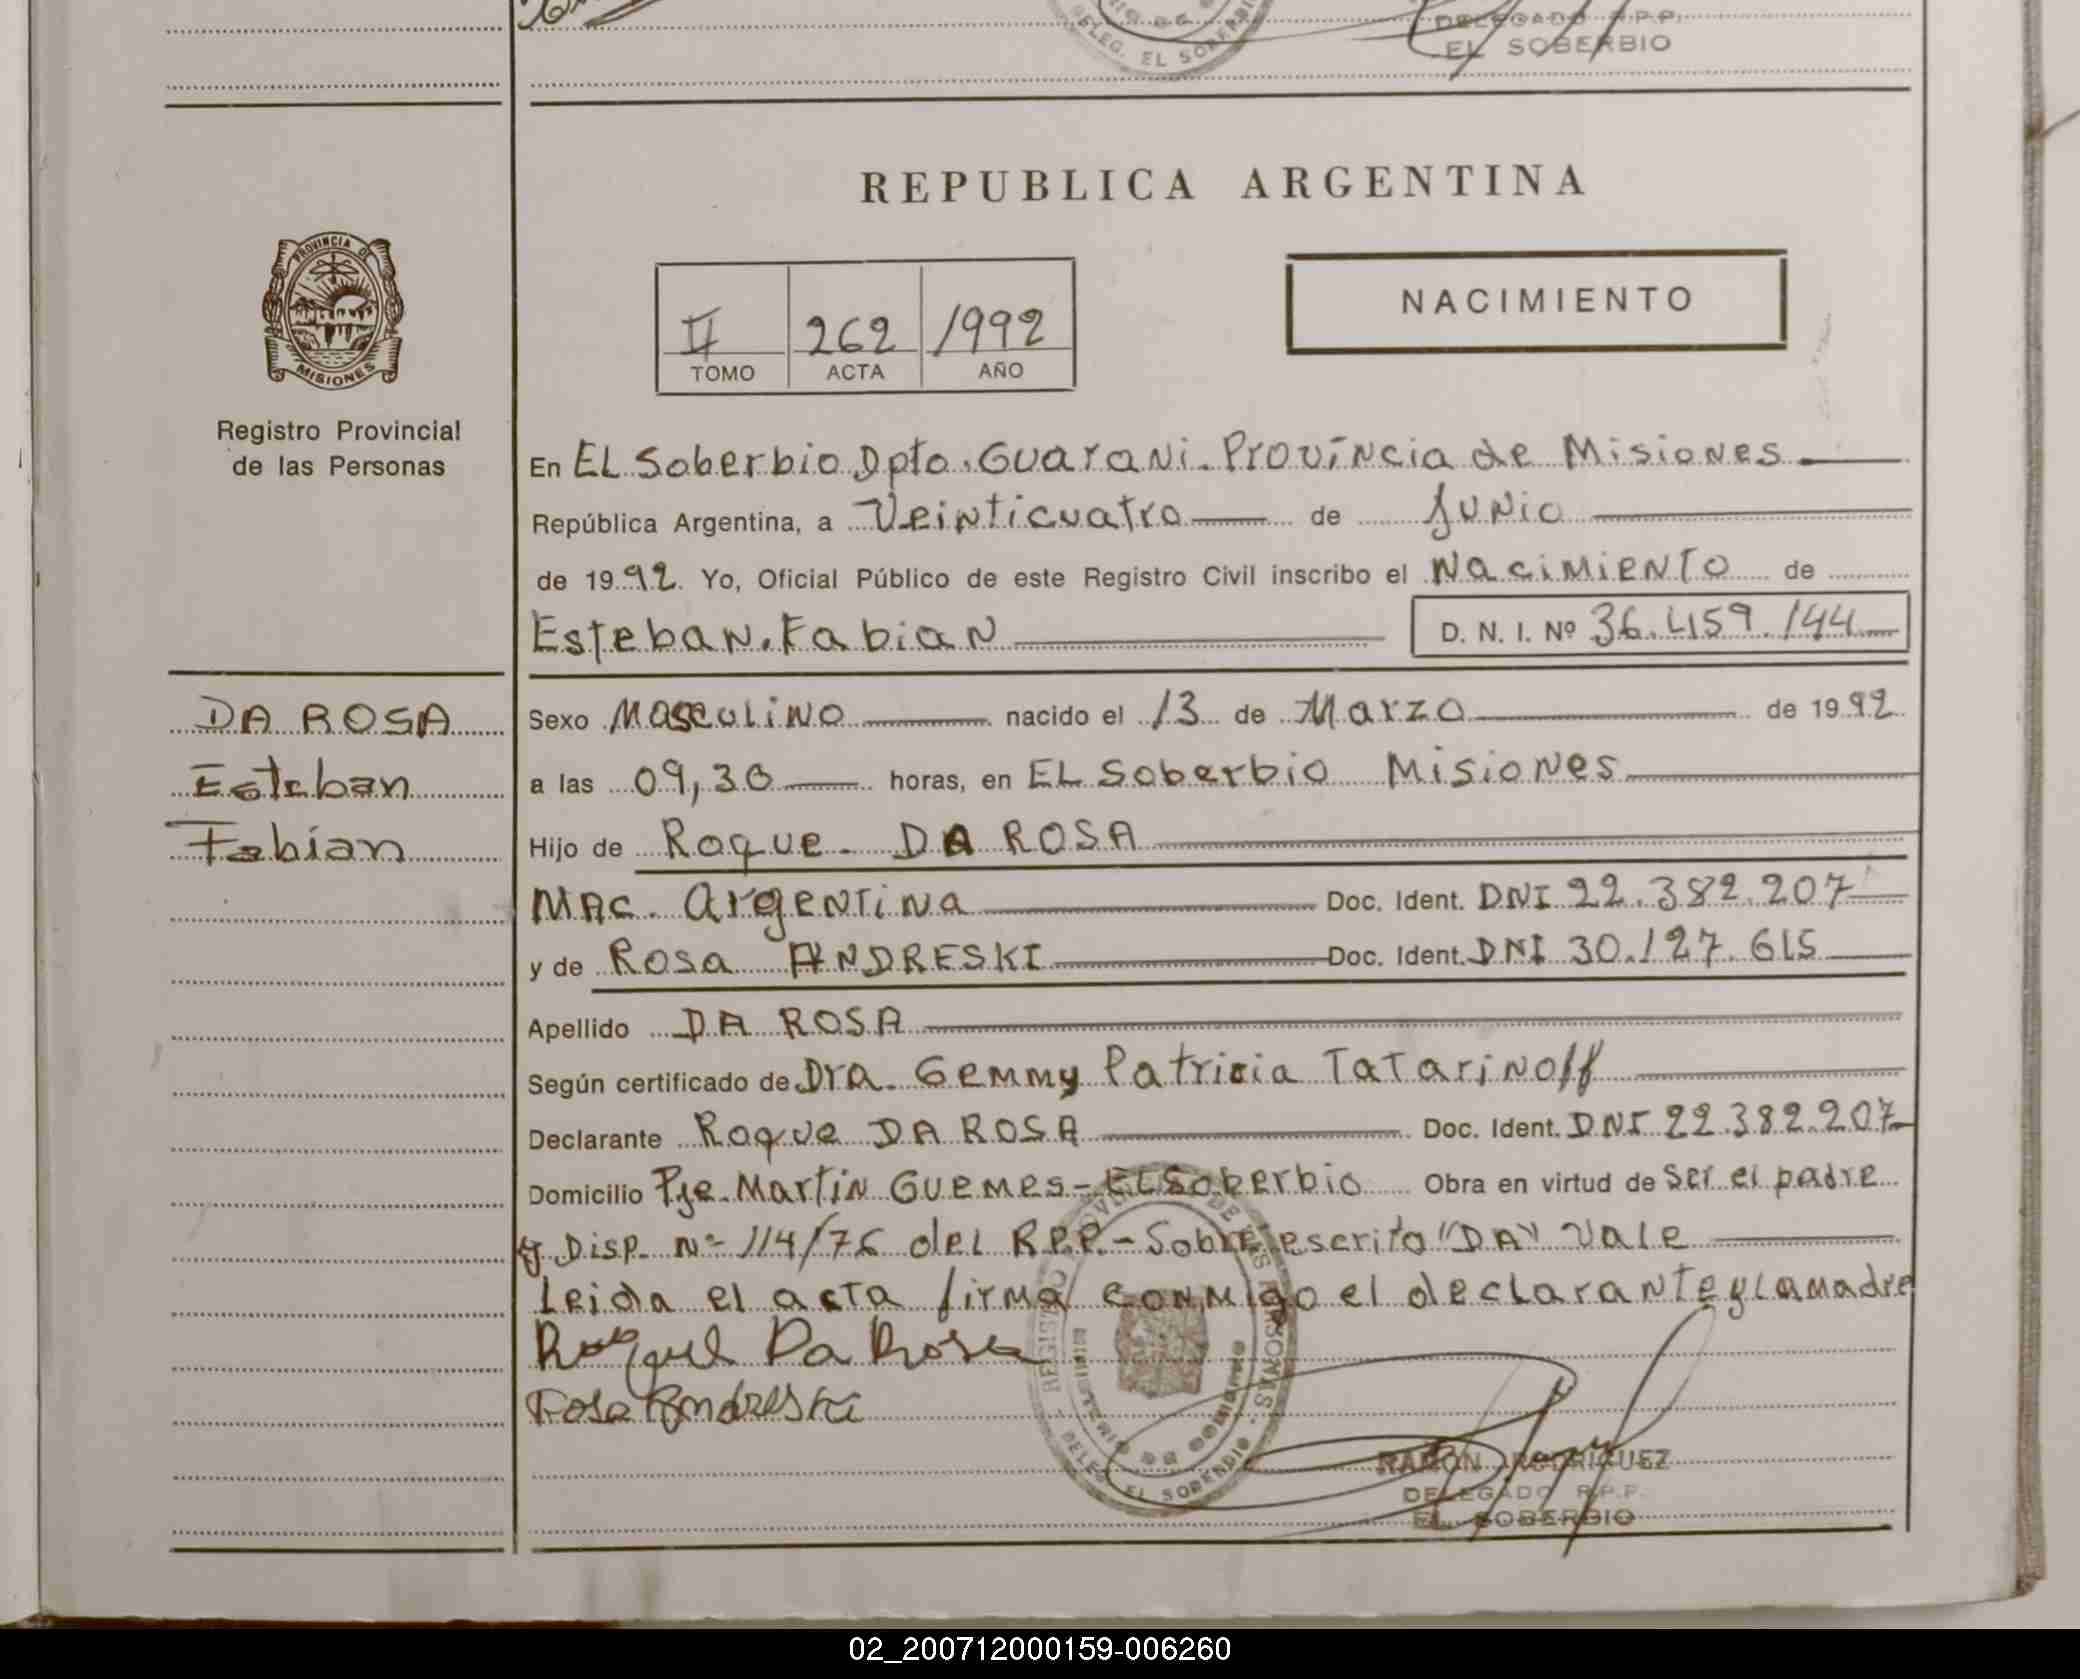 DELEGADO R.P.P.
DELEG. EL SOBERBIO
EL SOBERBIO
REPUBLICA ARGENTINA
PROVINCIA DE
MISIONES
Registro Provincial
de las Personas
II 262 1992
TOMO ACTA AÑO
NACIMIENTO
En EL Soberbio Dpto. Guarani. Provincia de Misiones
República Argentina, a Veinticuatro de Junio
de 1992. Yo, Oficial Público de este Registro Civil inscribo el Nacimiento de
Esteban Fabian D. N. I. Nº 36.459.144
DA ROSA
Esteban
Fabian
Sexo Masculino nacido el 13 de Marzo de 1992
a las 09,30 horas, en EL Soberbio Misiones
Hijo de Roque DA ROSA
Nac. Argentina Doc. Ident. DNI 22.382.207
y de Rosa ANDRESKI Doc. Ident. DNI 30.127.615
Apellido DA ROSA
Según certificado de Dra. Gemmy Patricia Tatarinoff
Declarante Roque DA ROSA Doc. Ident. DNI 22.382.207
Domicilio Pje. Martin Guemes - EL Soberbio Obra en virtud de ser el padre
y Disp. Nº 114/76 del R.P.P. - Sobre escrito "DA" Vale
Leida el acta firma conmigo el declarante y la madre
Roquel Da Rosa
Rosa Andreski
REGISTRO PROVINCIAL DE LAS PERSONAS
MINISTERIO DE GOBIERNO
DELEG. EL SOBERBIO
RAMON RODRIGUEZ
DELEGADO R.P.P.
EL SOBERBIO
02_200712000159-006260